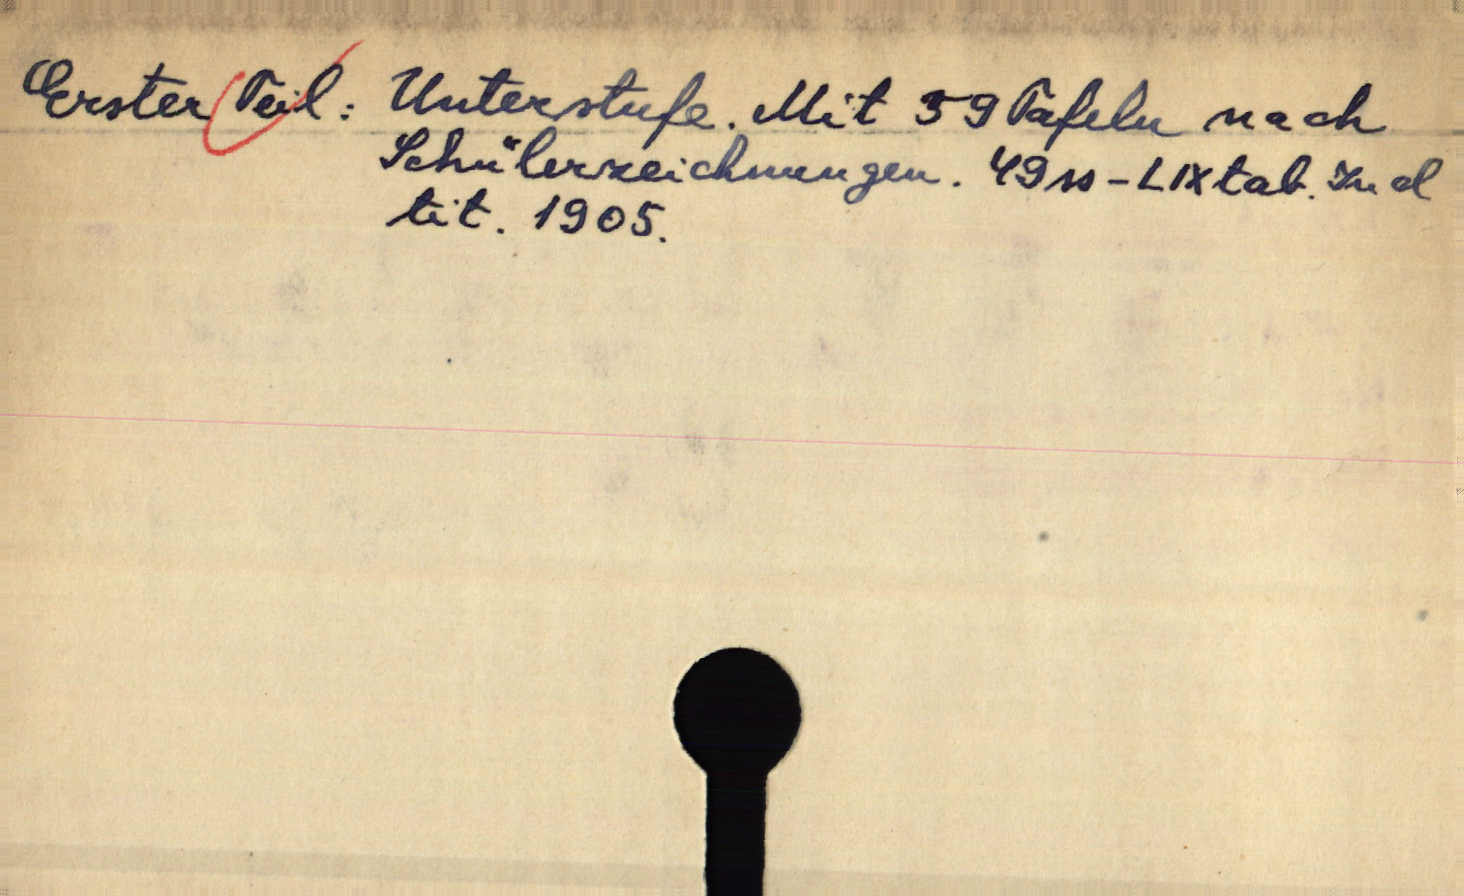 Erster Teil: Unterstufe. Mit 59 Tafeln nach
Schülerzeichnungen. 49 ss - LIX tab. 2nd
tit. 1905.